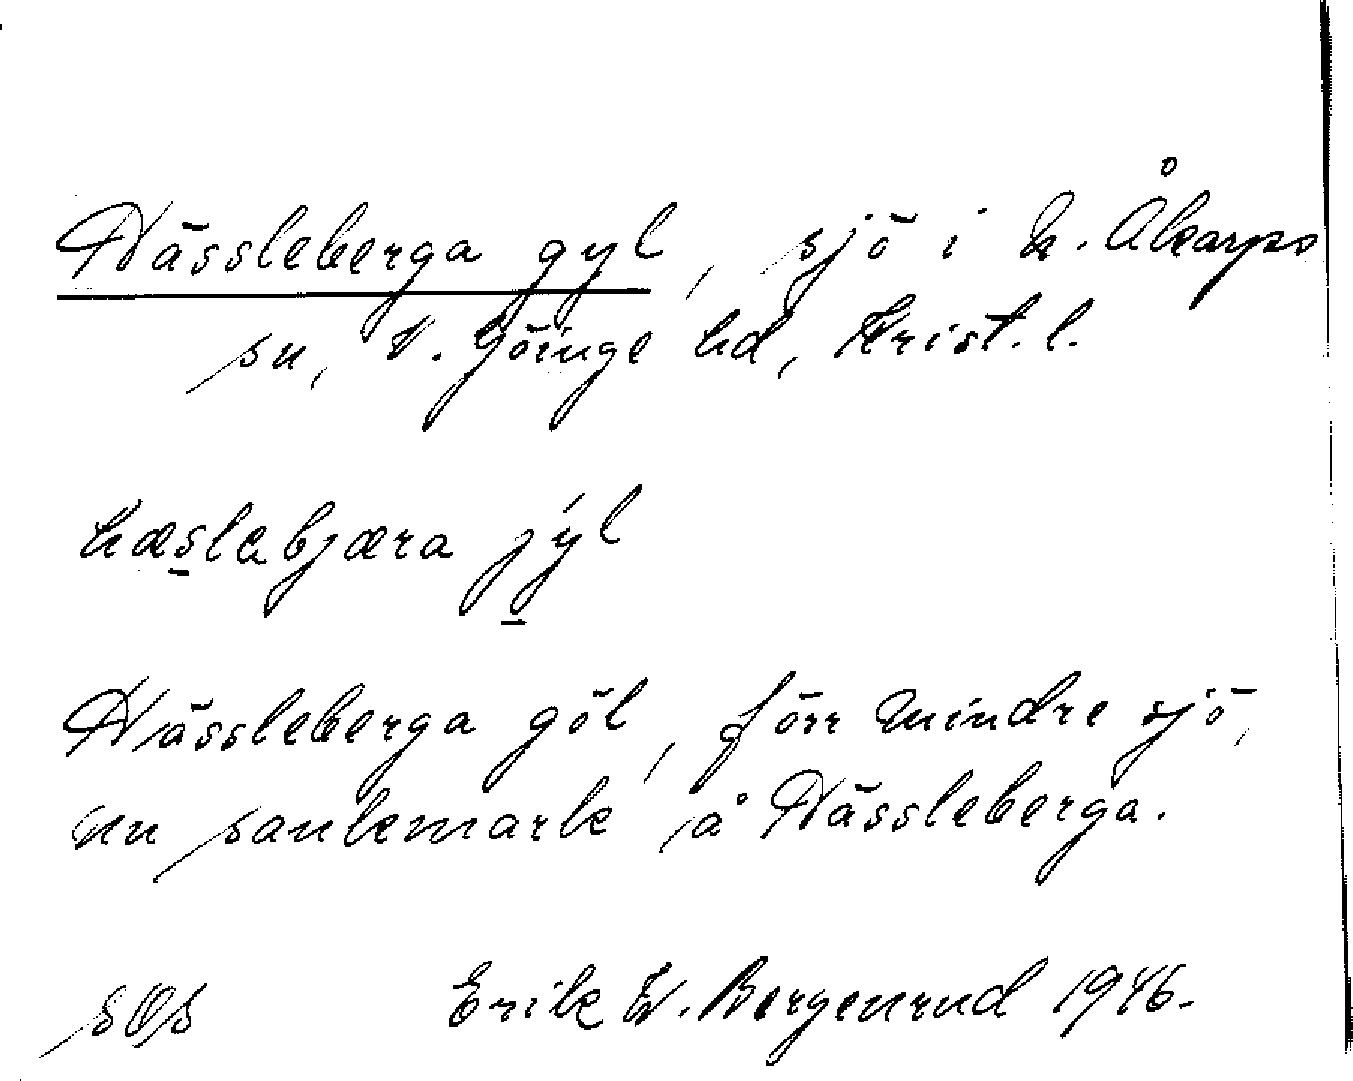 Hässleberga gyl, sjö i N. Åkarps
sn, V. Göinge hd, Krist. l.
hæslebjæra jýl
Hässleberga göl, förr mindre sjö,
nu sankmark å Hässleberga.
SOS Erik W. Bergenrud 1946.